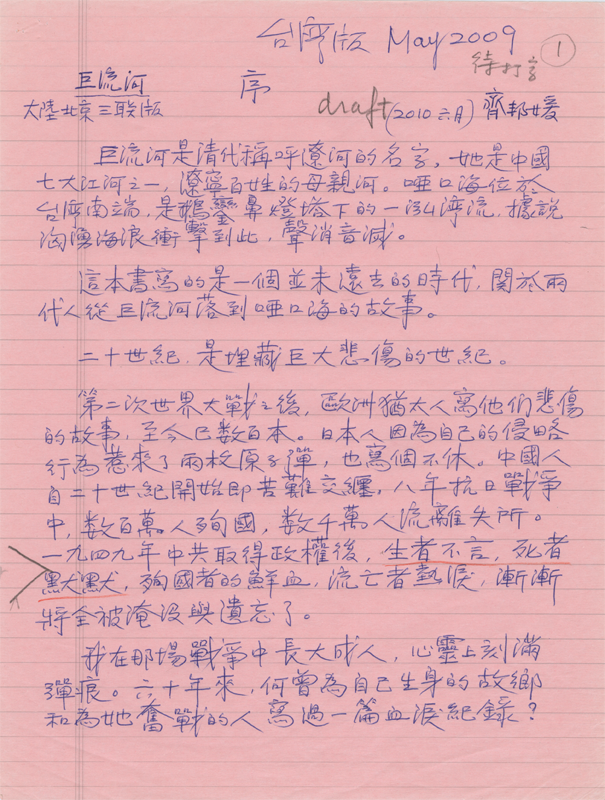 台灣版 May 2009 ①
待打字
巨流河 序
大陸北京三联版 draft (2010六月) 齊邦媛
巨流河是清代稱呼遼河的名字,她是中國
七大江河之一,遼寧百姓的母親河。啞口海位於
台灣南端,是鵝鑾鼻燈塔下的一泓灣流,據說
洶湧海浪衝擊到此,聲消音滅。
這本書寫的是一個並未遠去的時代,關於兩
代人從巨流河落到啞口海的故事。
二十世紀,是埋藏巨大悲傷的世紀。
第二次世界大戰之後,歐洲猶太人寫他們悲傷
的故事,至今已數百本。日本人因為自己的侵略
行為惹來了兩枚原子彈,也寫個不休。中國人
自二十世紀開始即苦難交纏,八年抗日戰爭
中,數百萬人殉國,數千萬人流離失所。
一九四九年中共取得政權後,生者不言,死者
默默,殉國者的鮮血,流亡者熱淚,漸漸
將全被淹没與遺忘了。
我在那場戰爭中長大成人,心靈上刻滿
彈痕。六十年來,何曾為自己生身的故鄉
和為她奮戰的人寫過一篇血淚紀錄?